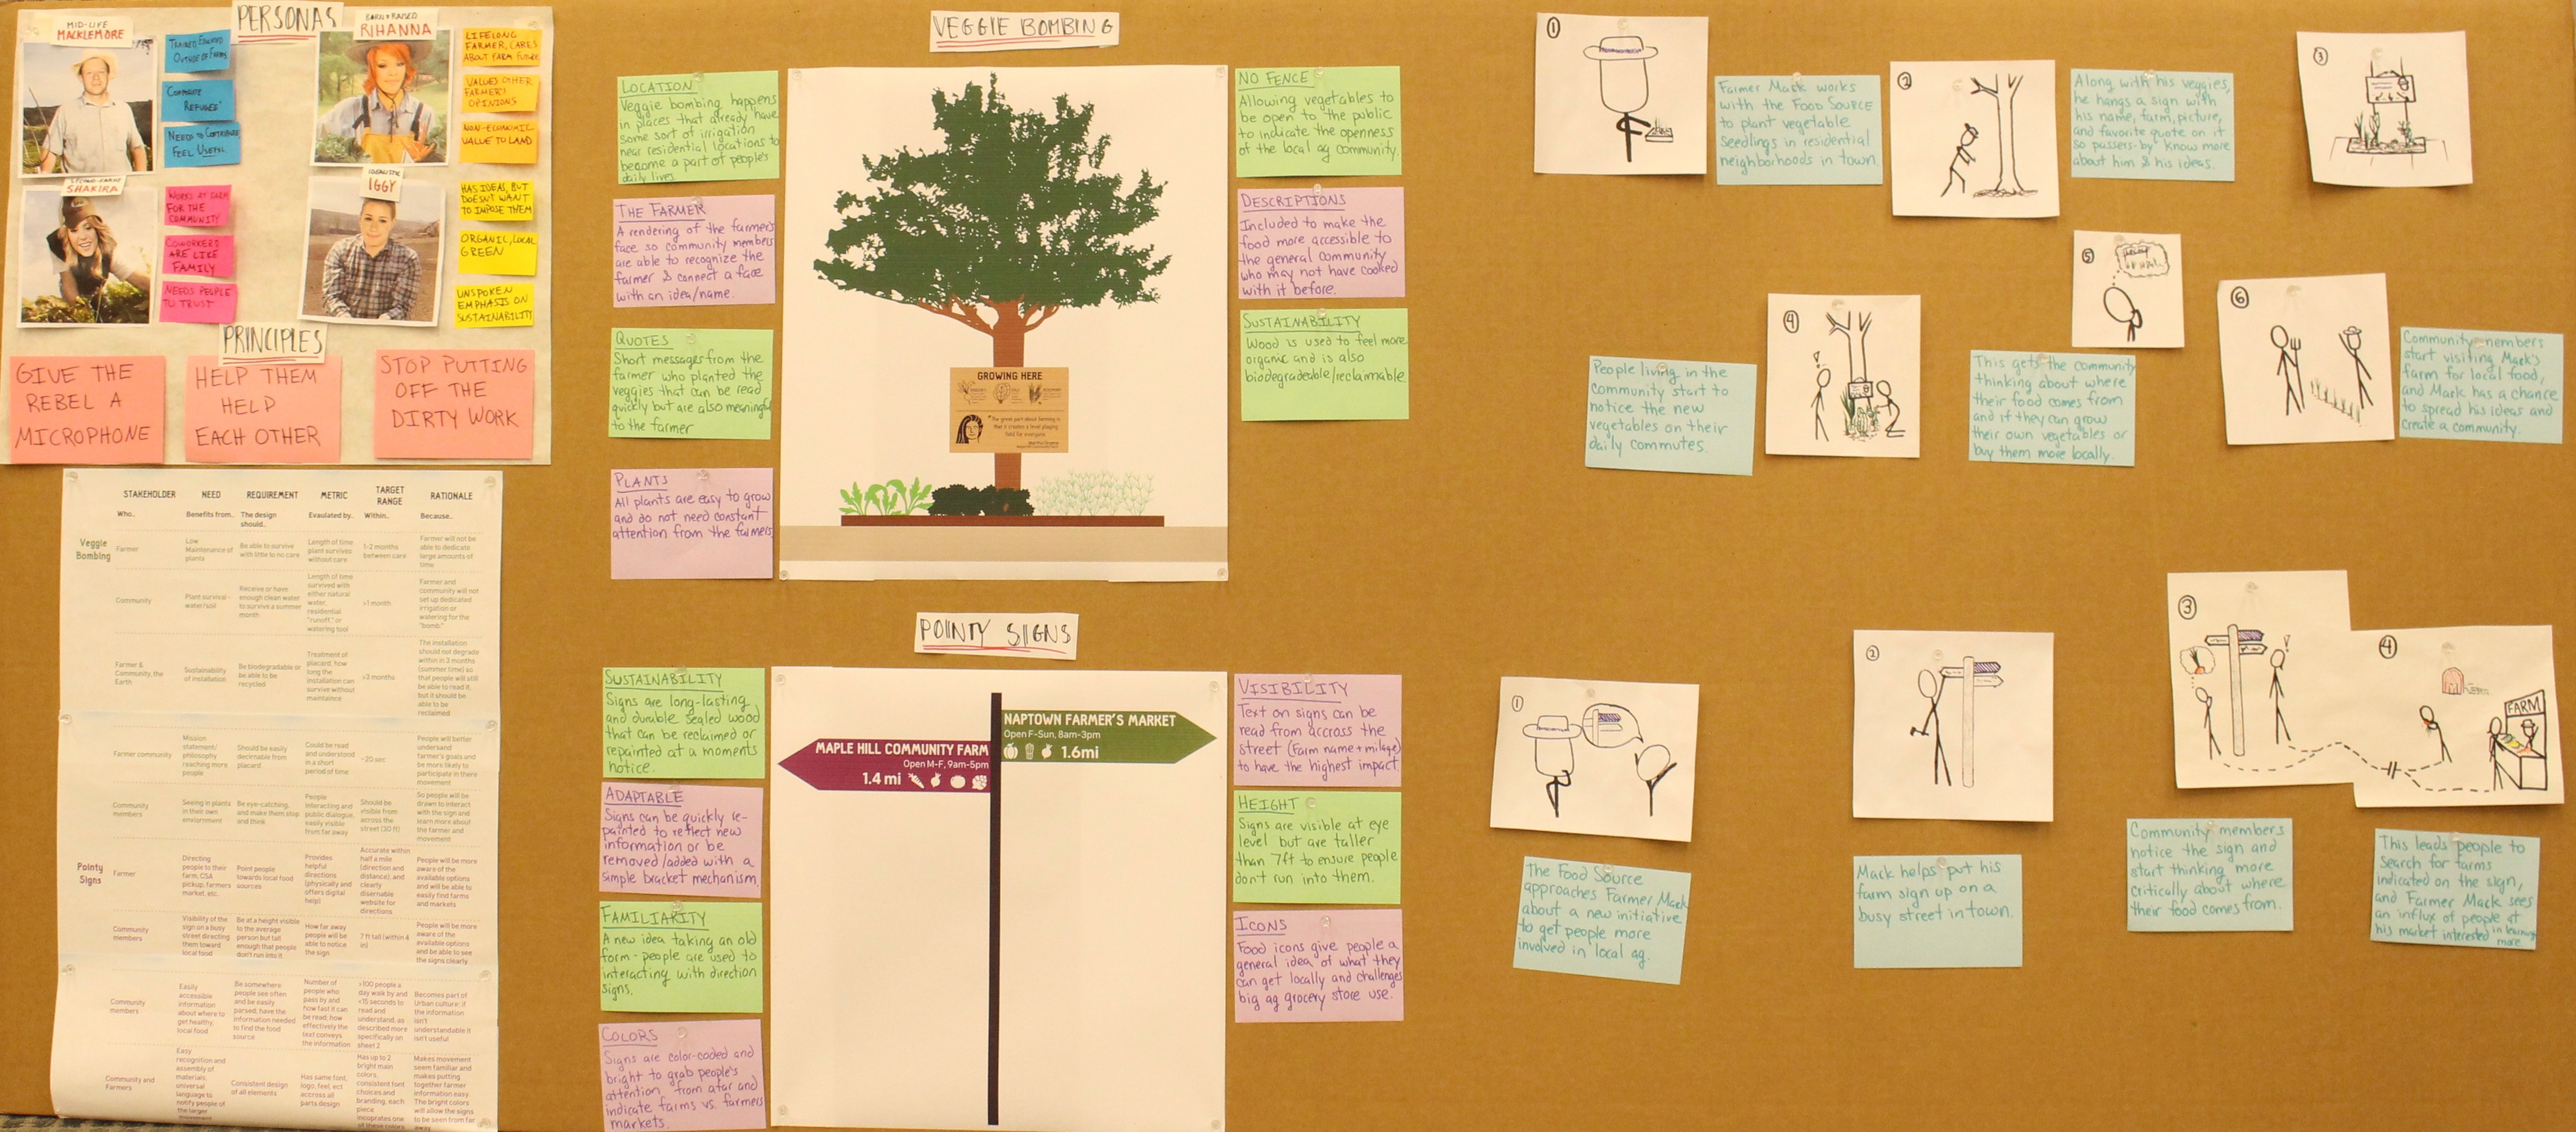 PERSONAS
MID-LIFE
MACKLEMORE
OUTSIDE OF FARMS
"CORPORATE
REFUGEE"
NEEDS TO CONTRIBUTE
FEEL USEFUL
BORN & RAISED
RIHANNA
LIFELONG
FARMER, CARES
ABOUT FARM FUTURE
VALUES OTHER
FARMER'S
OPINIONS
NON-ECONOMIC
VALUE TO LAND
SHAKIRA
WORKS AT FARM
FOR THE
COMMUNITY
COWORKERS
ARE LIKE
FAMILY
NEEDS PEOPLE
TO TRUST
IGGY
HAS IDEAS, BUT
DOESNT WANT
TO IMPOSE THEM
ORGANIC, LOCAL
GREEN
UNSPOKEN
EMPHASIS ON
SUSTAINABILITY
PRINCIPLES
GIVE THE
REBEL A
MICROPHONE
HELP THEM
HELP
EACH OTHER
STOP PUTTING
OFF THE
DIRTY WORK
STAKEHOLDER NEED REQUIREMENT METRIC TARGET RANGE RATIONALE
Who.. Benefits from.. The design should.. Evaulated by.. Within.. Because..
Veggie Bombing
Farmer
Low Maintenance of plants
Be able to survive with little to no care
Length of time plant survives without care
1-2 months between care
Farmer will not be able to dedicate large amounts of time
Community
Plant survival - water/soil
Receive or have enough clean water to survive a summer month
Length of time survived with either natural water, residential "runoff," or watering tool
>1 month
Farmer and community will not set up dedicated irrigation or watering for the "bomb."
Farmer & Community, the Earth
Sustainability of installation
Be biodegradable or be able to be recycled
Treatment of placard, how long the installation can survive without maintaince
>3 months
The installation should not degrade within in 3 months (summer time) so that people will still be able to read it, but it should be able to be reclaimed
Farmer community
Mission statement/ philosophy reaching more people
Should be easily decernable from placard
Could be read and understood in a short period of time
~20 sec
People will better undersand farmer's goals and be more likely to participate in there movement
Community members
Seeing in plants in their own enviornment
Be eye-catching, and make them stop and think
People interacting and public dialogue, easily visible from far away
Should be visible from across the street (30 ft)
So people will be drawn to interact with the sign and learn more about the farmer and movement
Pointy Signs
Farmer
Directing people to their farm, CSA pickup, farmers market, etc.
Point people towards local food sources
Provides helpful directions (physically and offers digital help)
Accurate within half a mile (direction and distance), and clearly disernable website for directions
People will be more aware of the available options and will be able to easily find farms and markets
Community members
Visibility of the sign on a busy street directing them toward local food
Be at a height visible to the average person but tall enough that people don't run into it
How far away people will be able to notice the sign
7 ft tall (within 4 in)
People will be more aware of the available options and be able to see the signs clearly
Community members
Easily accessible information about where to get healthy, local food
Be somewhere people see often and be easily parsed; have the information needed to find the food source
Number of people who pass by and how fast it can be read; how effectively the text conveys the information
>100 people a day walk by and <15 seconds to read and understand, as described more specifically on sheet 2
Becomes part of Urban culture; if the information isn't understandable it isn't useful
Community and Farmers
Easy recognition and assembly of materials; universal language to notify people of the larger
Consistent design of all elements
Has same font, logo, feel, ect accross all parts design
Has up to 2 bright main colors, consistent font choices and branding, each piece incoprates one of these colors
Makes movement seem familiar and makes putting together farmer information easy. The bright colors will allow the signs to be seen from far away
VEGGIE BOMBING
LOCATION
Veggie bombing happens
in places that already have
some sort of irrigation
near residential locations to
become a part of people's
daily lives.
THE FARMER
A rendering of the farmer's
face so community members
are able to recognize the
farmer & connect a face
with an idea/name.
QUOTES
Short messages from the
farmer who planted the
veggies that can be read
quickly but are also meaningful
to the farmer
PLANTS
All plants are easy to grow
and do not need constant
attention from the farmers
GROWING HERE
"The great part about farming is
that it creates a level playing
field for everyone.
NO FENCE
Allowing vegetables to
be open to the public
to indicate the openness
of the local ag community.
DESCRIPTIONS
Included to make the
food more accessible to
the general community
who may not have cooked
with it before.
SUSTAINABILITY
Wood is used to feel more
organic and is also
biodegradeable/reclaimable.
1
Farmer Mack works
with the Food Source
to plant vegetable
Seedlings in residential
neighborhoods in town
2
Along with his veggies,
he hangs a sign with
his name, farm, picture,
and favorite quote on it
so passers-by know more
about him & his ideas.
3
People living in the
community start to
notice the new
vegetables on their
daily commutes.
4
!
This gets the community
thinking about where
their food comes from
and if they can grow
their own vegetables or
buy them more locally.
5
6
Community members
start visiting Mark's
farm for local food,
and Mack has a chance
to spread his ideas and
create a community.
POINTY SIGNS
SUSTAINABILITY
Signs are long-lasting
and durable sealed wood
that can be reclaimed or
repainted at a moments
notice.
ADAPTABLE
Signs can be quickly re-
painted to reflect new
information or be
removed/added with a
simple bracket mechanism.
FAMILIARITY
A new idea taking an old
form - people are used to
interacting with direction
signs.
COLORS
Signs are color-coded and
bright to grab people's
attention from afar and
indicate farms vs. farmers
markets.
NAPTOWN FARMER'S MARKET
Open F-Sun, 8am-3pm
1.6mi
MAPLE HILL COMMUNITY FARM
Open M-F, 9am-5pm
1.4 mi
VISIBILITY
Text on signs can be
read from accross the
street (Farm name + milage)
to have the highest impact.
HEIGHT
Signs are visible at eye
level but are taller
than 7ft to ensure people
don't run into them.
ICONS
Food icons give people a
general idea of what they
can get locally and challenges
big ag grocery store use.
1
The Food Source
approaches Farmer Mack
about a new initiative
to get people more
involved in local ag.
2
Mack helps put his
farm sign up on a
busy street in town.
3
!
Community members
notice the sign and
start thinking more
critically about where
their food comes from.
4
FARM
This leads people to
search for farms
indicated on the sign,
and Farmer Mack sees
an influx of people at
his market interested in learning
more.